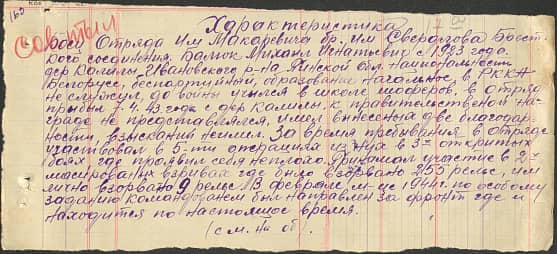 160
советый
Характеристика
боец Отряда им Макаревича бр. им Свердлова Брест-
кого соединения. Балюк Михаил Игнатьевич с 1923 года.
дер Калилы, Ивановского р-на Пинской обл. Национальность
Белорус, беспартийный, образование начальное, в РККА
не служил, до войны учился в школе шоферов. в отряд
прибыл 7.4.43 года с дер Калилы. к правительственой на-
граде не представлялся, имел вынесеных две благодар-
ности, взысканий неимел. За время пребывания в отряде
участвовал в 5-ти операциях из них в 3-х открытых
боях где проявил себя неплохо. Принимал участие в 2-х
масированых взривах где было взорвано 255 рельс, им
лично взорвано 9 рельс. В феврале м-це 1944 г. по особому
заданию командованием был направлен за фронт где и
находится по настоящее время.
(см. на об)